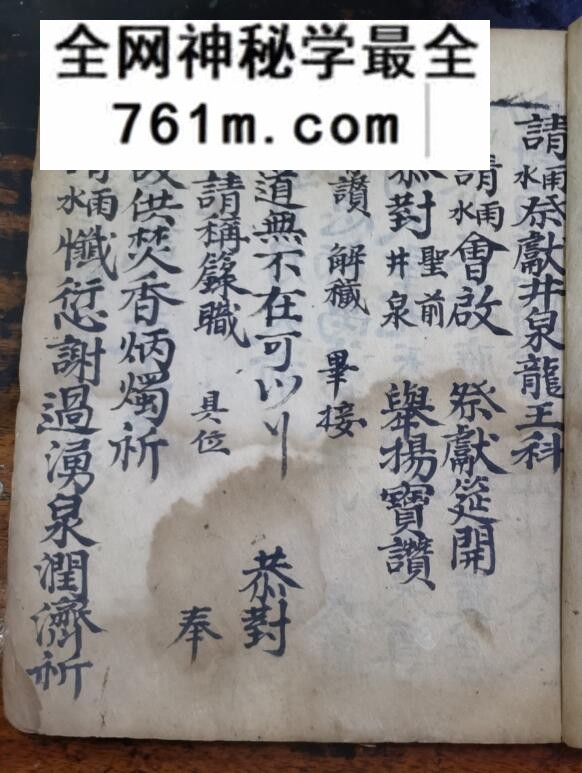 全网神秘学最全
761m.com
請雨水祭獻井泉龍王科
請雨水會啟 祭獻筵開
恭對聖前井泉 舉揚寶讚
讚 解穢 畢接
道無不在可以 恭對
請稱籙職 具位 奉
供焚香炳燭祈
雨水懺愆謝過湧泉潤濟祈